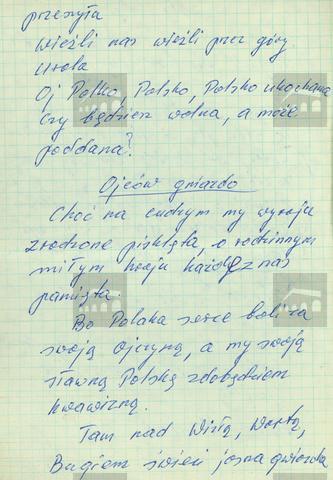 przesyła
wieźli nas wieźli przez góry
Urala
Oj Polko, Polsko, Polsko ukochana
Czy będziesz wolna, a może
poddana?
Ojców gniazdo
Choć na cudzym my wyraju
zrodzone pisklęta, o rodzinnym
miłym kraju każde z nas
pamięta.
Bo Polaka serce boli za
swoją ojczyzną, a my swoją
sławną Polskę zdobędziem
krwawizną.
Tam nad Wisłą, Wartą,
Bugiem świeci jasna gwiazda